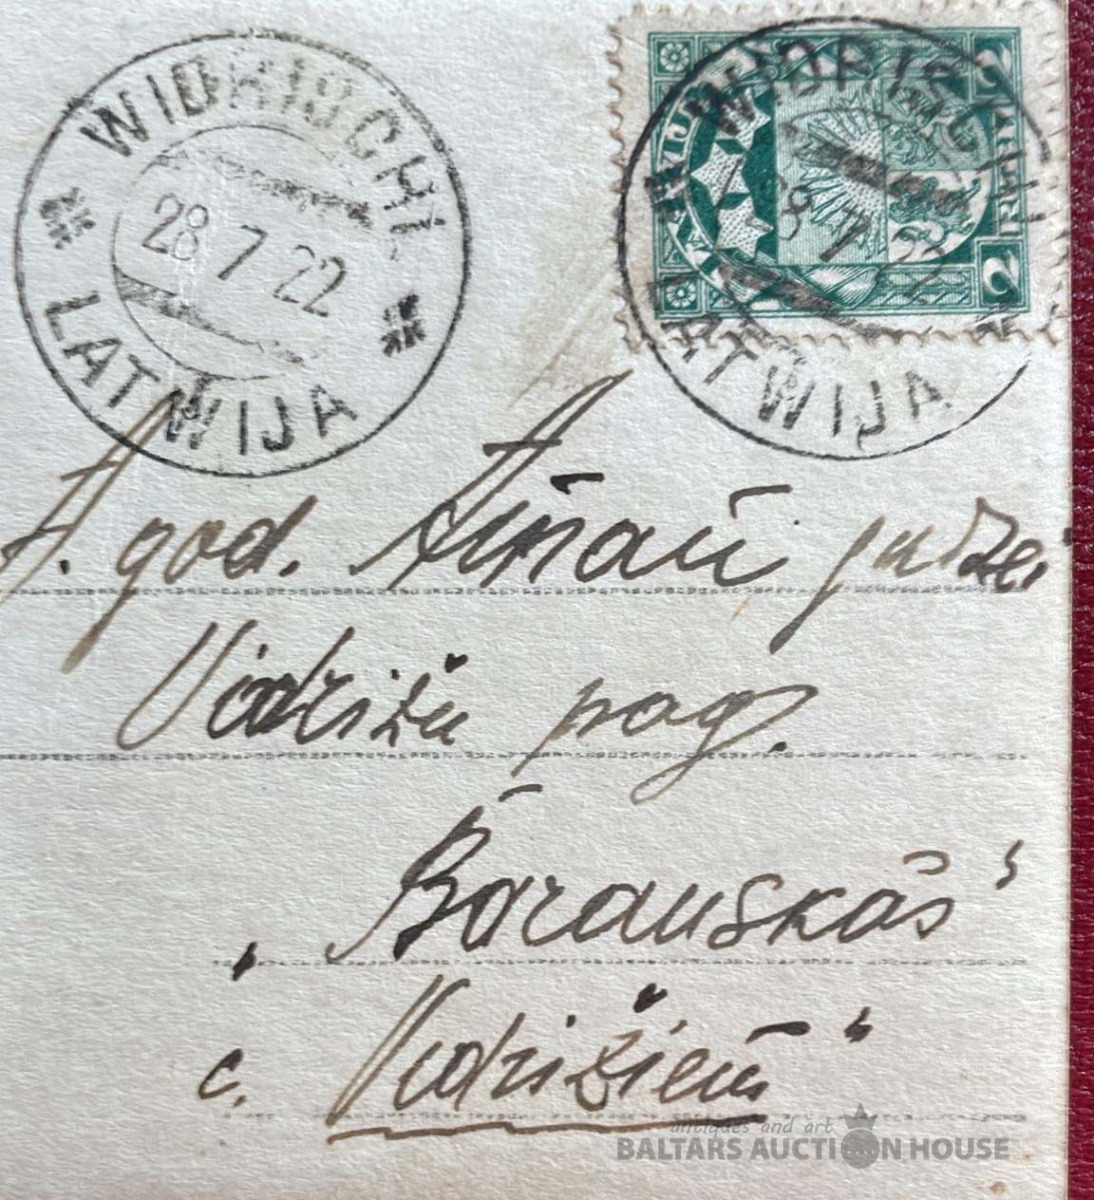 WIDRISCHI
28 7 22
LATWIJA
WIDRISCHI
28 7 22
LATWIJA
LATVIJA
2 2
A. god.
Vidrižu pag.
„Bārauskās"
c. Vidrižiem"
antiques and art
BALTARS AUCTION HOUSE